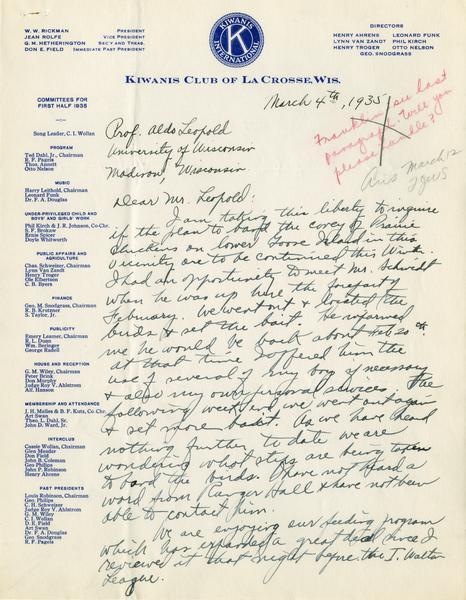 W. W. RICKMAN PRESIDENT
JEAN ROLFE VICE PRESIDENT
G. M. HETHERINGTON SECY AND TREAS.
DON E. FIELD IMMEDIATE PAST PRESIDENT
KIWANIS
K
INTERNATIONAL
DIRECTORS
HENRY AHRENS LEONARD FUNK
LYNN VAN ZANDT PHIL KIRCH
HENRY TROGER OTTO NELSON
GEO. SNODGRASS
KIWANIS CLUB OF LA CROSSE, WIS.
COMMITTEES FOR
FIRST HALF 1935
Song Leader, C. I. Wollan
PROGRAM
Ted Dahl, Jr., Chairman
R. F. Pagels
Thos. Annett
Otto Nelson
MUSIC
Harry Leithold, Chairman
Leonard Funk
Dr. F. A. Douglas
UNDER-PRIVILEGED CHILD AND
BOYS' AND GIRLS' WORK
Phil Kirch & J. R. Johnson, Co-Chr.
S. F. Brokaw
Ernie Spicer
Doyle Whitworth
PUBLIC AFFAIRS AND
AGRICULTURE
Chas. Schweizer, Chairman
Lynn Van Zandt
Henry Troger
Ole Elbertson
C. B. Byers
FINANCE
Geo. M. Snodgrass, Chairman
R. B. Krotzner
S. Taylor, Jr.
PUBLICITY
Emery Leamer, Chairman
R. L. Dunn
Wm. Beringer
George Radell
HOUSE AND RECEPTION
G. M. Wiley, Chairman
Peter Brink
Don Murphy
Judge Roy V. Ahlstrom
Alf. Hanson
MEMBERSHIP AND ATTENDANCE
J. H. Malles & B. F. Kuts, Co Chr.
Art Swan
Theo. L. Dahl, Sr.
John D. Ward, Jr.
INTERCLUB
Cassie Wollan, Chairman
Glen Meader
Don Field
John B. Coleman
Geo Philips
John P. Robinson
Henry Ahrens
PAST PRESIDENTS
Louis Robinson, Chairman
Geo. Philips
C. H. Schweizer
Judge Roy V. Ahlstrom
G. M. Wiley
C. I. Wollan
D. E. Field
Art Swan
Dr. F. A. Douglas
Geo Snodgrass
R. F. Pagels
March 4th, 1935
Franklin, see last
paragraph. Will you
please handle?
March 12
Prof. Aldo Leopold
University of Wisconsin
Madison, Wisconsin
Dear Mr. Leopold:
I am taking this liberty to inquire
if the plan to band the covey of Prairie
Chickens on lower Goose Island in this
vicinity are to be continued this Winter.
I had an opportunity to meet Mr. Schmidt
when he was up here the forepart of
February. We went out & located the
birds & set the bait. He informed
me he would be back about Feb 20th.
at that time I offered him the
use of several of my boys if necessary
& also my own personal services. The
following week end we went out again
& set more bait. As we have heard
nothing further to date we are
wondering what steps are being taken
to band the birds. I have not heard a
word from Ranger Hall & have not been
able to contact him.
We are enjoying our feeding program
which has expanded a great deal since I
reviewed it that night before the I. Walton
League.